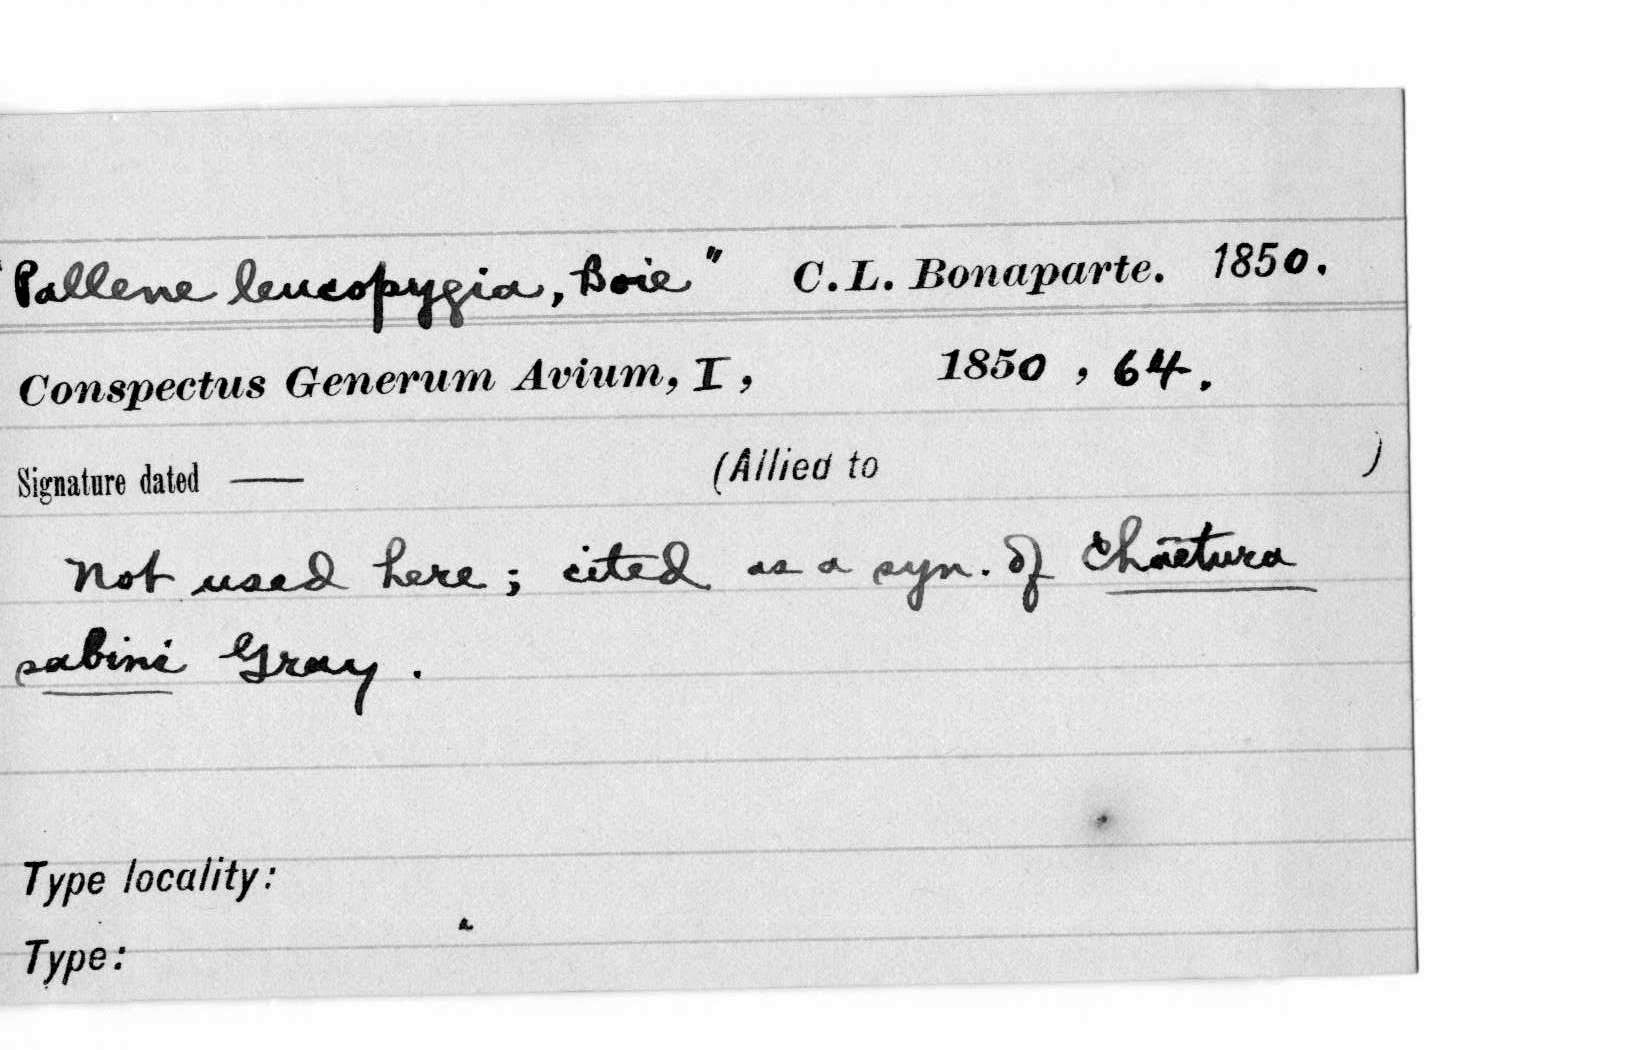 "Pallene leucopygia, Boie" C. L. Bonaparte. 1850.
Conspectus Generum Avium, I, 1850, 64.
Signature dated — (Allied to )
Not used here; cited as a syn. of Chaetura
sabini Gray.
Type locality:
Type: